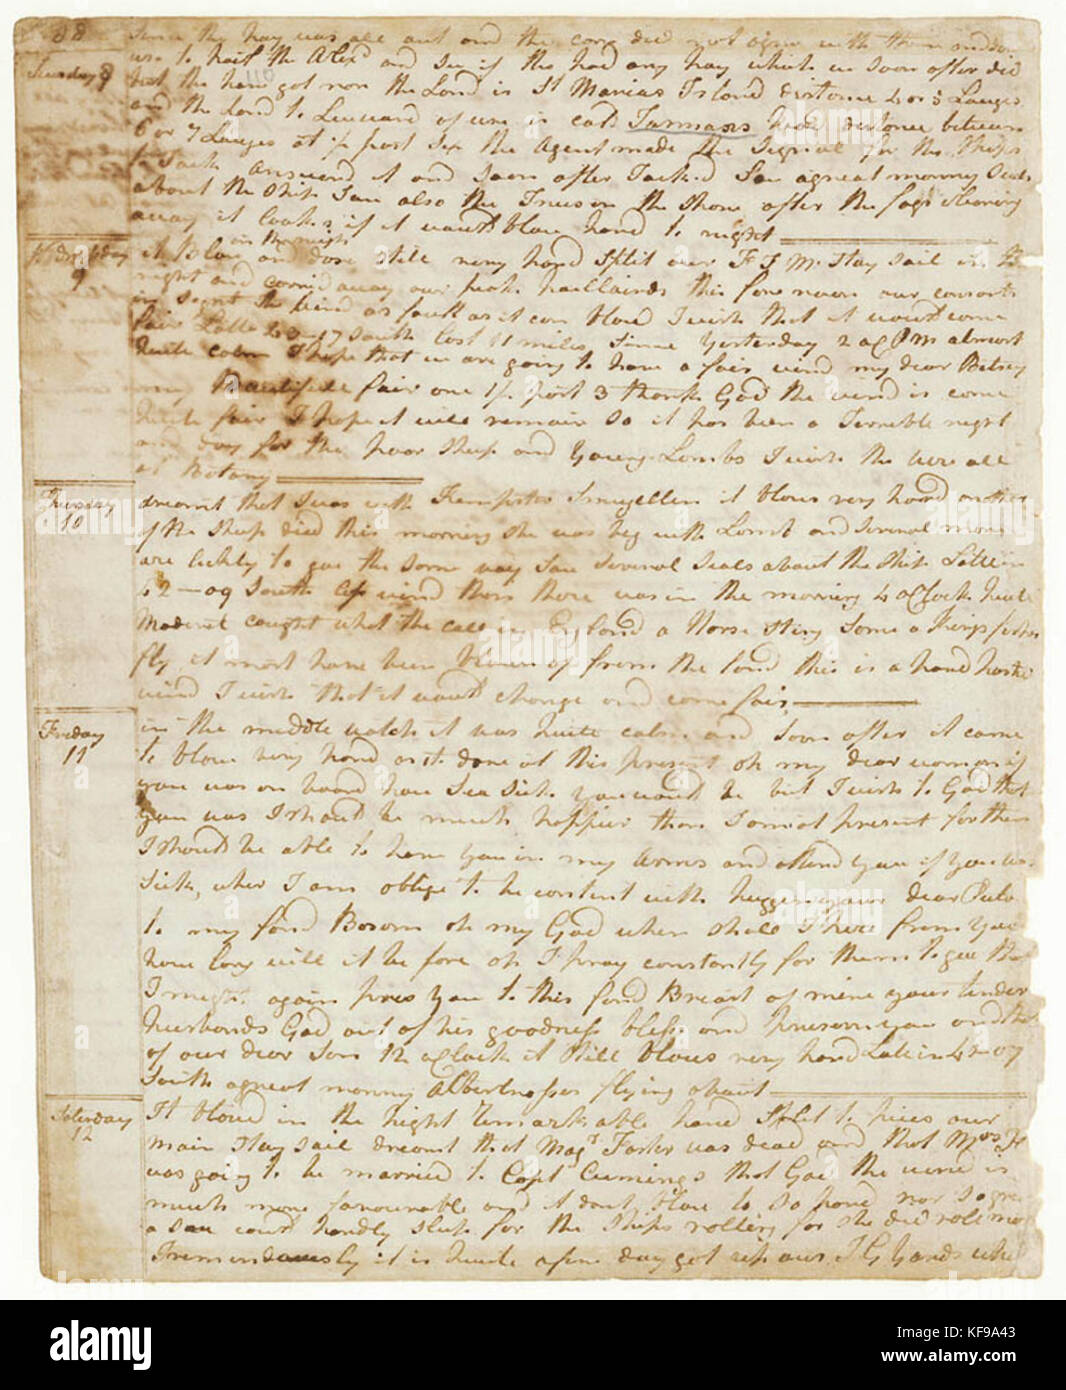 88
since the hay was all out and the corn did not agree with them
to hail the Alexr and see if the had any hay which we soon after did
Tuesday 8
but the have got non the Land is St Marias Island distance 4 or 5 Leagues
and the Land to Leeward of us is cald Tasmans head distance between
6 or 7 Leagues at ½ past Six the Agent made the Signal for the Ships
to Tack Answerd it and soon after Tack.d Saw a great monny Seals
about the Ship Saw also the Trees on the Shore after the fogs clearing
away it looks as if it would blow hard to night
Wednesday 9
it Blew in the night and dose still very hard Split our F T M Stay Sail in the
night and carrid away our hailliards this fore noon our consorts
in Seight the wind as foull as it can blow I wish that it would come
fair Latt 43-17 South Lost 11 miles Since Yesterday 2 oC P.M almost
quite calm I hope that we are going to have a fair wind my dear Betsey
my Beautifull fair one ½ past 3 thank God the wind is come
quite fair I hope it will remain So it has been a Terrible night
and day for the poor Sheep and Young Lambs I wish the were all
at Botany
Thursday 10
dreamt that I was with Kempster Smugellen it blows very hard
of the Sheep died this morning she was big with Lamb and Several more
are lickly to goe the Same way Saw Several Seals about the Ship Latt in
42-09 South wind then there was in the morning 4 oClock quite
Moderat caught what the call in England a Horse Sting Some a Kings fisher
fly it most have been blown of from the land this is a hard harted
wind I wish that it would change and come fair
Friday 11
in the middle watch it was quite calm and Soon after it came
to blow very hard as it dose at this present oh my dear woman if
you was on board how Sea Sick you would be but I wish to God that
you was I should be much happier than I am at present for then
I should be able to have You in my Arms and attend you if you was
Sick, wher I am oblige to be content with your dear
to my fond Bosom oh my God when shall I hear from You
how long will it be fore oh I pray constantly for them to gee that
I might again pres You to this fond Breast of mine your tinder
husbands God out of his goodness bless and preserve you and that
of our dear Son 12 oClock it Still blows very hard Latt in 42-07
South a great monny Albertrosses flying about
Saturday 12
It blowd in the Night remarkable hard Split to pices our
main Stay Sail dreamt that Magr Foster was dead and that Mrs F
was going to be married to Capt Cumings thank God the wind is
much more favourable and it dont blow to So hard nor So great
a Sea could hardly sleep for the Ships rolling for she did roll most
Tremendously it is quite a fine day got up our T G Yards
alamy
Image ID: KF9A43
www.alamy.com